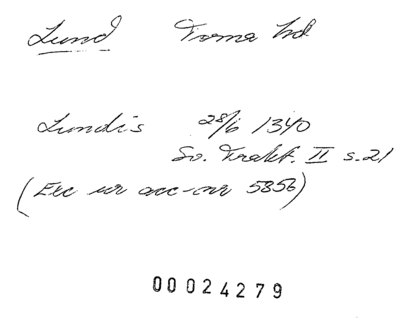 Lund Torna hd
Lundis 28/6 1340
Sv. Trakt. II s. 21
(Exc ur acc-nr 5856)
00024279